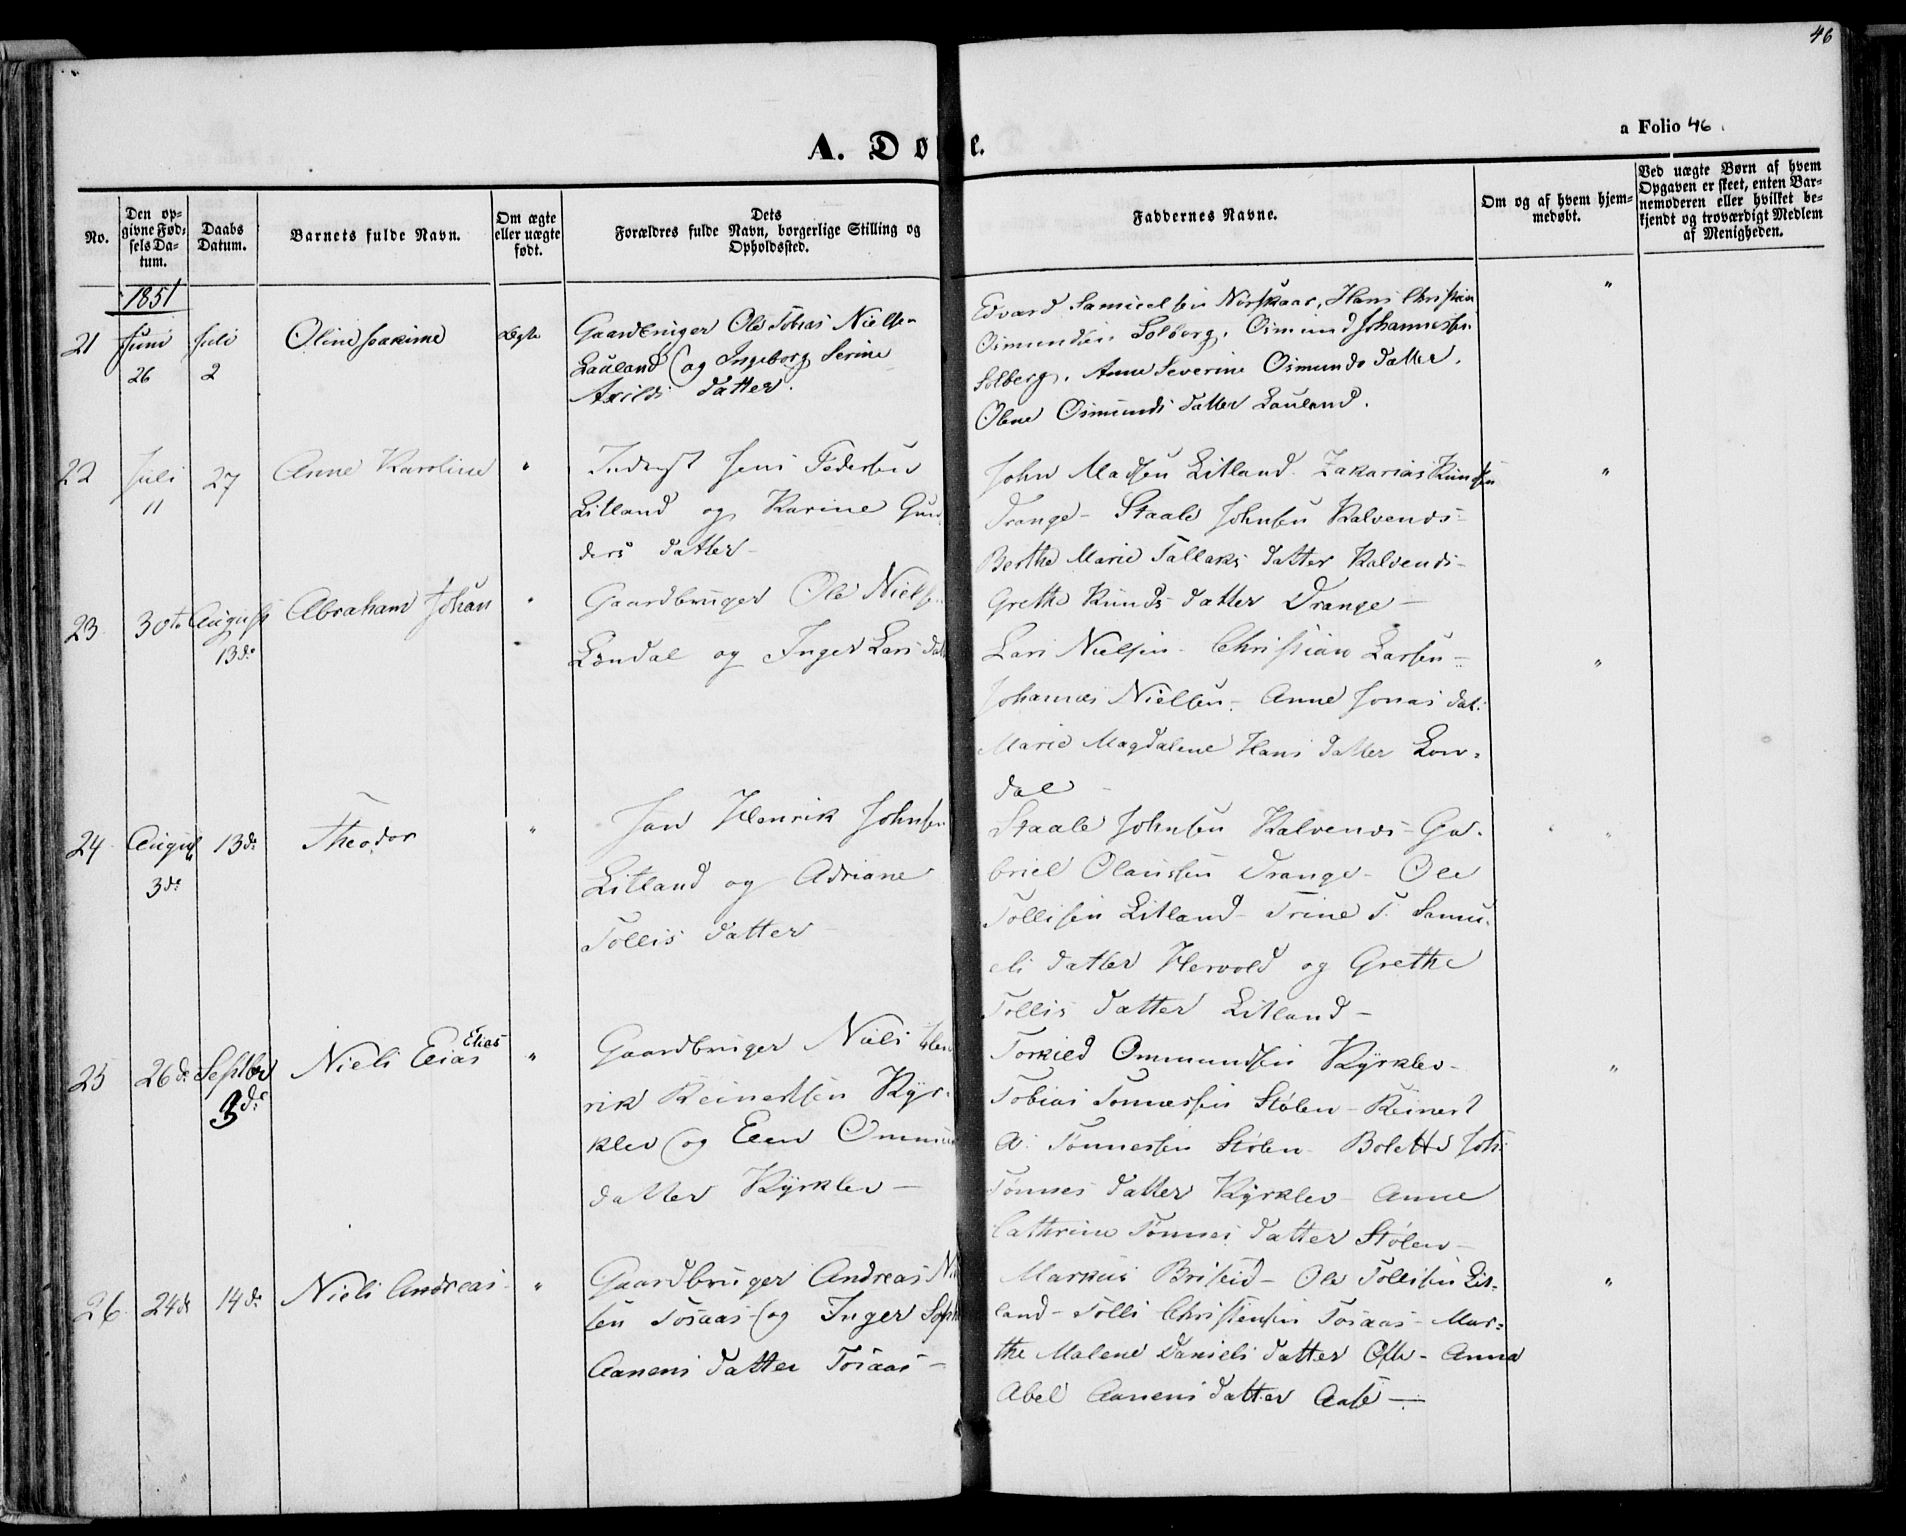 46
a Folio 46.
A. Dø e.
No.
Den op-
givne Fød-
sels Da-
tum.
Daabs
Datum.
Barnets fulde Navn.
Om ægte
eller uægte
født.
Dets
Forældres fulde Navn, borgerlige Stilling og
Opholdssted.
Faddernes Navne.
Om og af hvem hjem-
medøbt.
Ved uægte Børn af hvem
Opgaven er skeet, enten Bar-
nemoderen eller hvilket be-
kjendt og troværdigt Medlem
af Menigheden.
1851
21 Juni 26 Juli 2 Oline Joakime Ægte
Gaardbruger Ole Tobias Nielsen
Lauland og Ingeborg Serine
Axilds Datter.
Edvard Samuelsen Nörskaar, Hans Christian
Osmundsen Solberg. Osmund Johannessen
Solberg. Anne Severine Osmunds Datter.
Olene Osmunds Datter Lauland.
"
22 Juli 11 27 Anne Karoline "
Inderst Jens Pedersen
Litland og Karine Gun
ders Datter -
John Madsen Litland. Zakarias Knudsen
Drange - Staale Johnsen Kalvenes -
Berthe Marie Tallaks Datter Kalvenes -
Grethe Knuds Datter Drange -
"
23 30te August 13de Abraham Johan "
Gaardbruger Ole Nielse
Londal og Inger Lars Dat
Lars Nielsen - Christian Larsen -
Johannes Nielsen - Anne Jonas Dat:
Marie Magdalene Hans Datter Lon-
dal
"
24 August 3de 13de Theodor "
Jan Henrik Johnsen
Litland og Adriane
Tollis Datter
Staale Johnsen Kalvenes - Ga-
briel Olaussen Drange - Ole
Tollisen Litland - Trine T. Samu-
els Datter Hervold og Grethe
Tollis Datter Litland -
"
25 26de Septber 3de Niels Elias Elias "
Gaardbruger Niels Hen
rik Reinertsen Kyr-
klev og Elen Ommun
datter Kyrklev -
Torkild Ommundsen Kyrklev -
Tobias Tonnessen Stølen - Reinert
A. Tønnessen Stølen - Bolette Joh:
Tønnes Datter Kyrklev - Anne
Cathrine Tønnes Datter Stølen -
"
26 24de 14de Niels Andreas "
Gaardbruger Andreas Ni
sen Tosaas og Inger Soph
Aanens Datter Tosaas -
Markus Briseid - Ole Tollisen Lit-
land - Tolli Christensen Tosaas - Mar-
the Malene Daniels Datter Ofte - Anna
Abel Aanens Datter Aase -
"